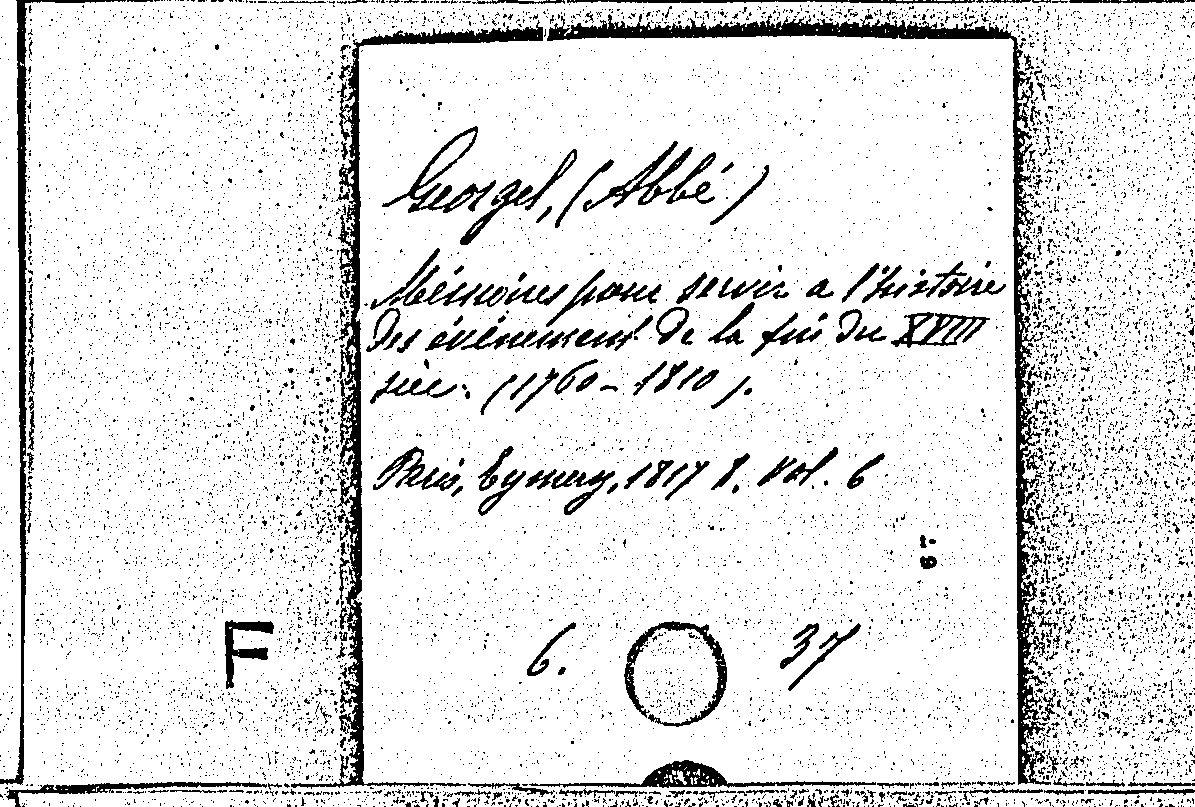 Georgel, (Abbé)
Mémoires pour servir a l'histoire
des événement de la fin du XVIII
siéc. (1760-1810).
Paris, Eymery, 1817 8. Vol. 6
F
6. 37